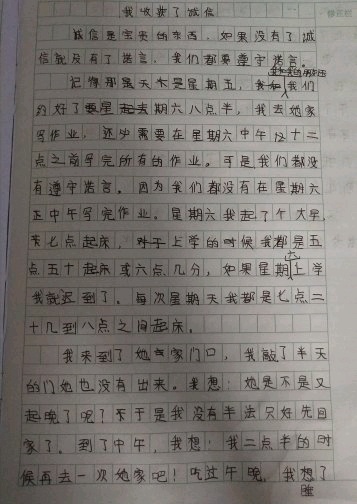 我收获了诚信
诚信是宝贵的东西，如果没有了诚
信就没有了诺言，我们都要遵守诺言。
记得那是天不是星期五，我们
约好了星期六八点半，我去她家
写作业，还必需要在星期六中午12十二
点之前写完所有的作业。可是我们都没
有遵守诺言。因为我们都没有在星期六
正中午写完作业。星期六我起了个大早，
七点起床，上学的时候我都是五
点五十起床或六点几分，如果星期六上学
我就迟到了。每次星期天我都是七点二
十几到八点之间起床。
我来到了她家门口，我敲了半天
的门她也没有出来。我想：她是不是又
起晚了呢？于是我没有半法只好先回
家了。到了中午，我想：我二点半的时
候再去一次她家吧！吃过午晚，我想了
睡